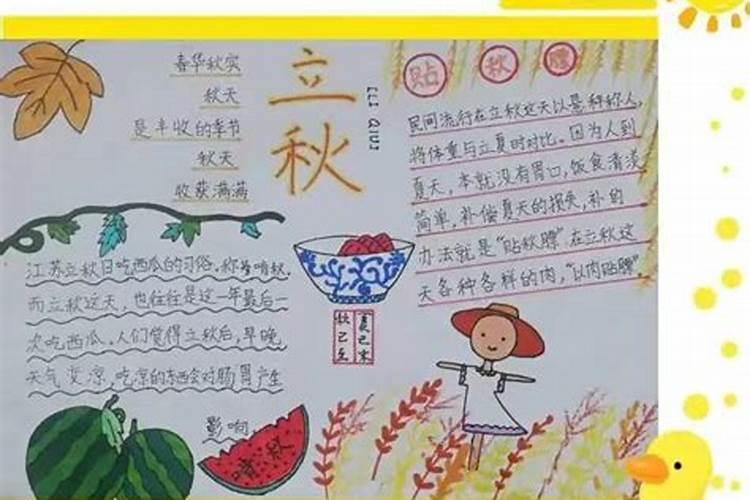 春华秋实
秋天
是丰收的季节
秋天
收获满满
立秋
LI QIUJ
贴秋膘
民间流行在立秋这天以悬秤称人,
将体重与立夏时对比。因为人到
夏天,本就没有胃口,饭食清淡
简单,补偿夏天的损失,补的
办法就是“贴秋膘”在立秋这
天各种各样的肉,“以肉贴膘”。
江苏立秋日吃西瓜的习俗。称为啃秋。
而立秋这天,也往往是这一年最后一
次吃西瓜。人们觉得立秋后,早晚
天气变凉,吃凉的东西会对肠胃产生
影响。
夏已末
秋已至
啃秋